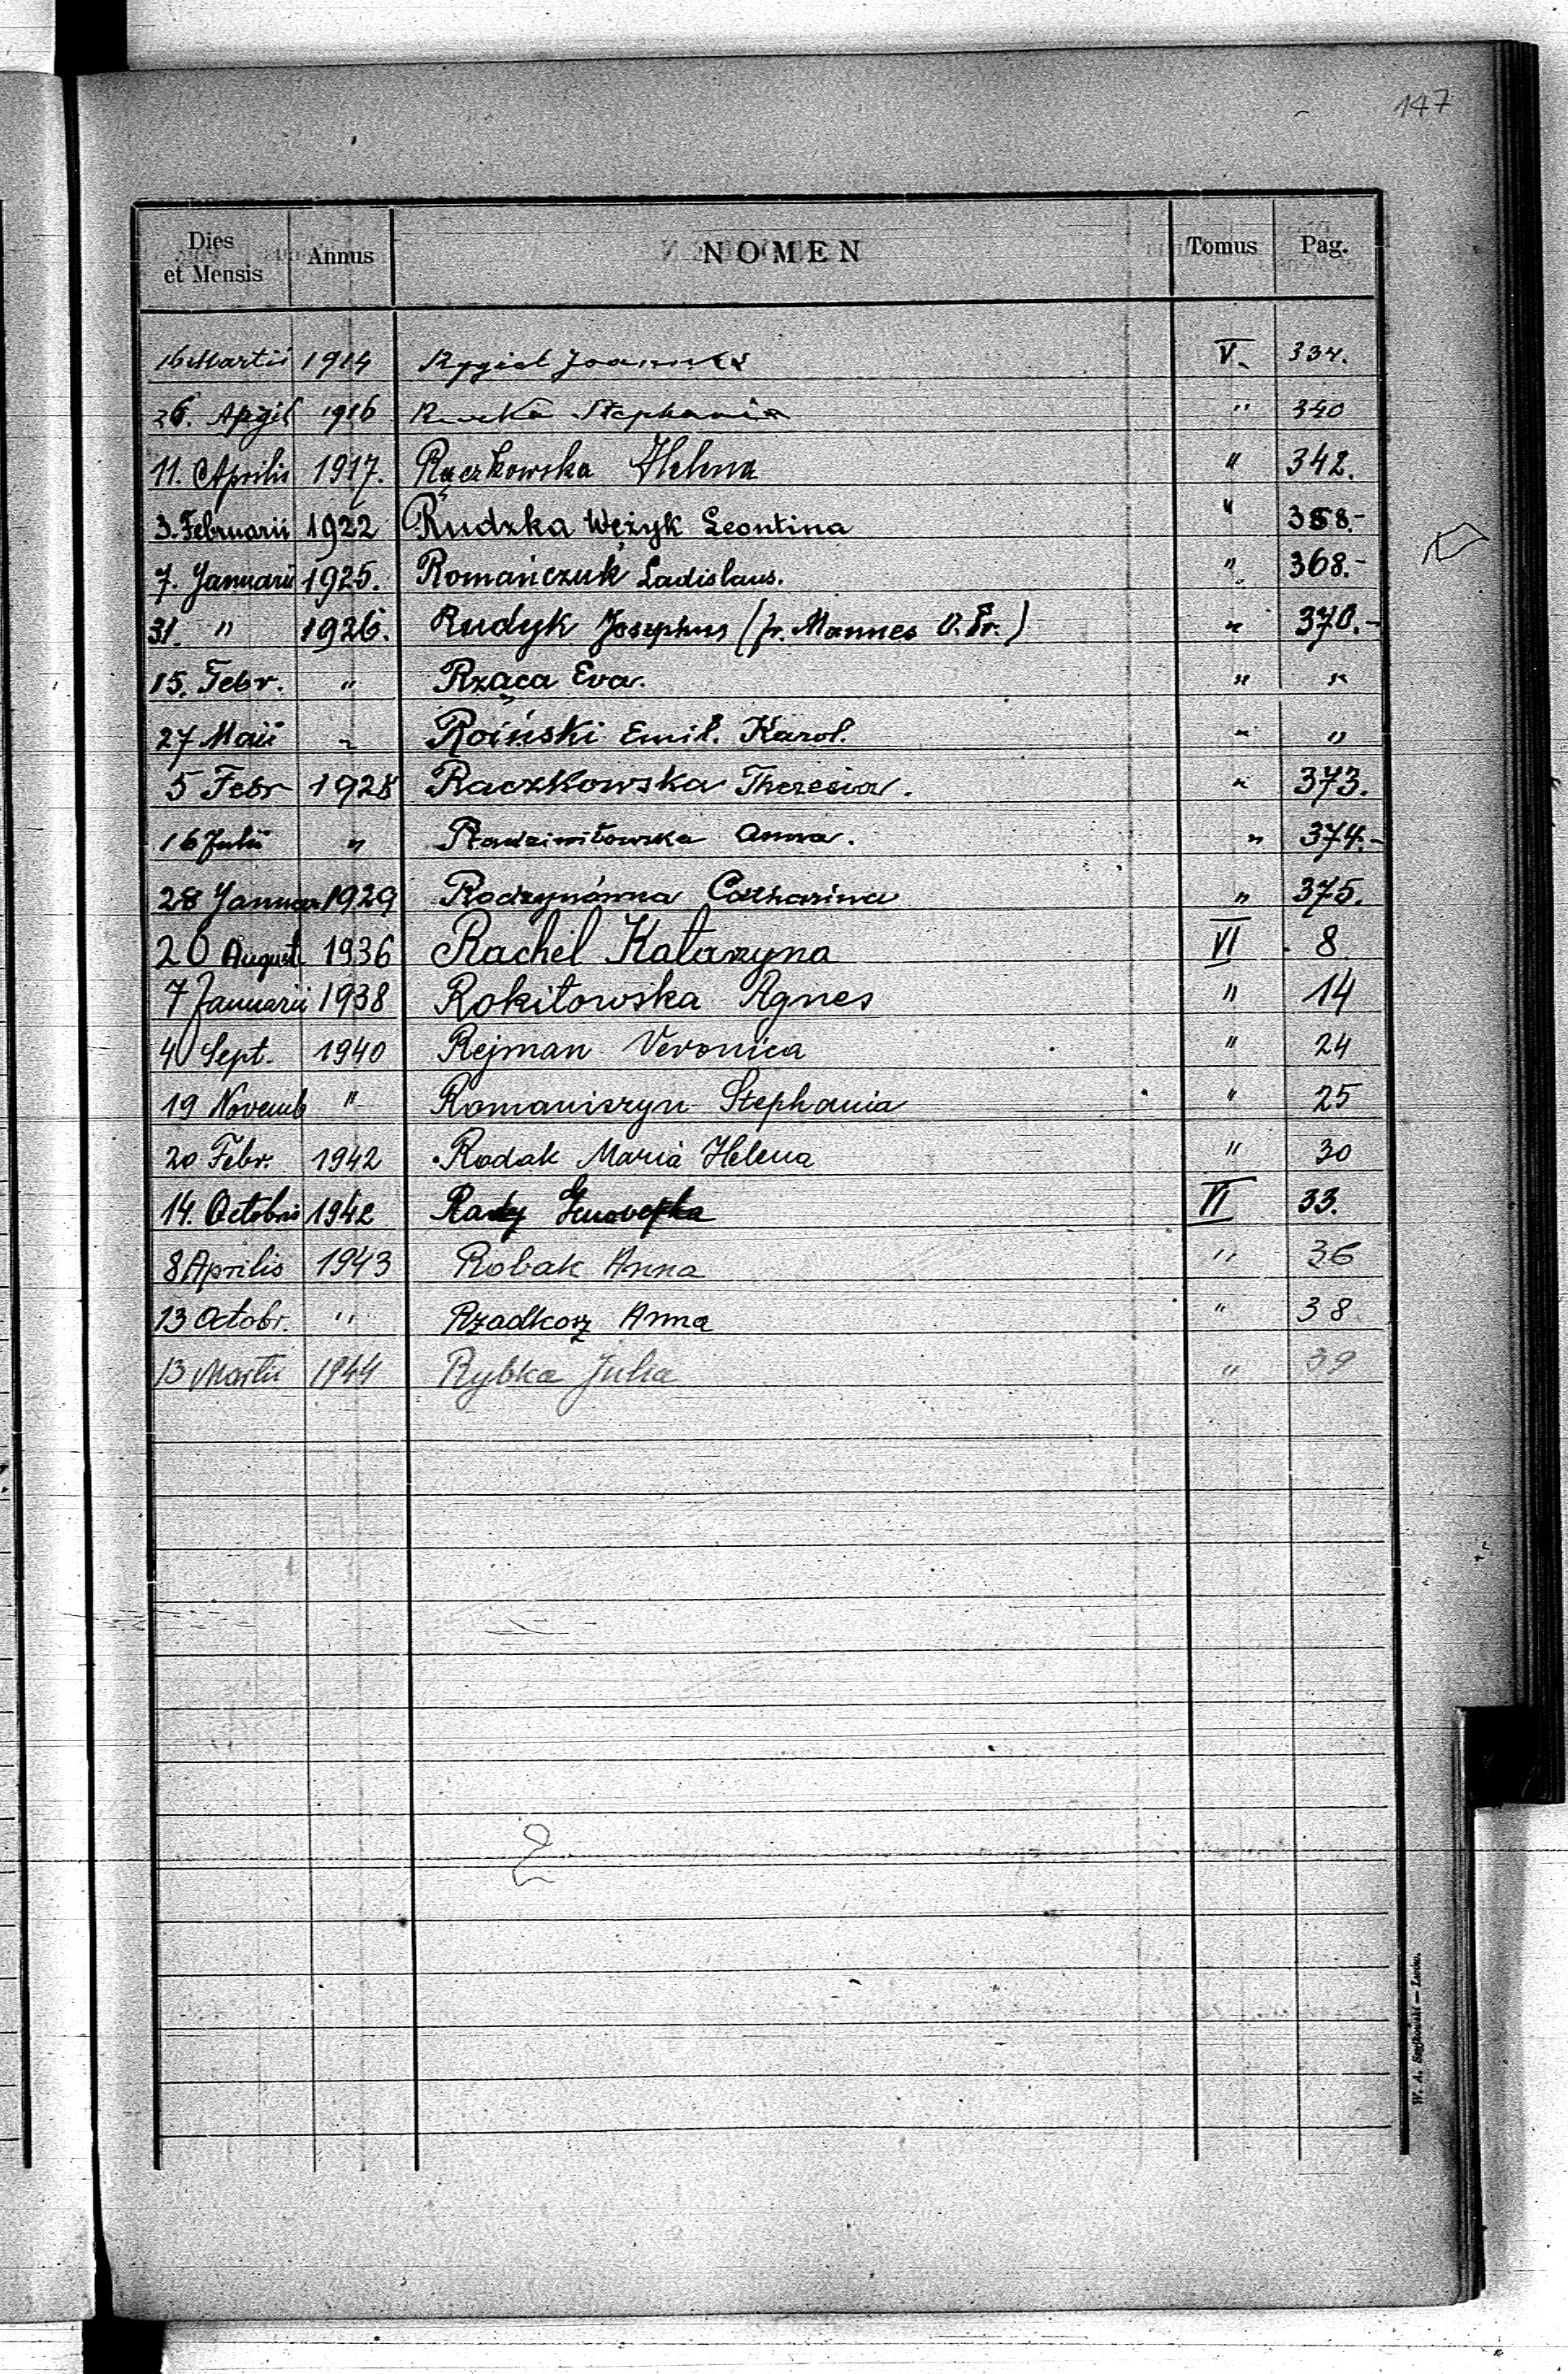 147
Dies et Mensis Annus NOMEN Tomus Pag.
16 Martii 1914 Rygiel Joannes V. 334.
26. April 1916 Stephania " 340
11. Aprilis 1917. Rączkowska Helena " 342.
3. Februarii 1922 Rudzka Wężyk Leontina " 358.-
7. Januarii 1925. Romańczuk Ladislaus. " 368.-
31. " 1926. Rudyk Josephus (fr. Mannes O. Pr.) " 370.-
15. Febr. " Rząca Eva. " "
27 Maii " Roiński Emil. Karol. " "
5 Febr 1928 Raczkowska Theresia. " 373.
16 Julii " Radzimiłowska Anna. " 374.-
28 Januar 1929 Catharina " 375.
20 August 1936 Rachel Katarzyna VI 8
7 Januarii 1938 Rokitowska Agnes " 14
4 Sept. 1940 Rejman Veronica " 24
19 Novemb " Romaniszyn Stephania " 25
20 Febr. 1942 Rodak Maria Helena " 30
14. Octobris 1942 VI 33.
8 Aprilis 1943 Robak Anna " 36
13 Octobr. " Rzadkosz Anna " 38
13 Martii 1944 Rybka Julia " 39